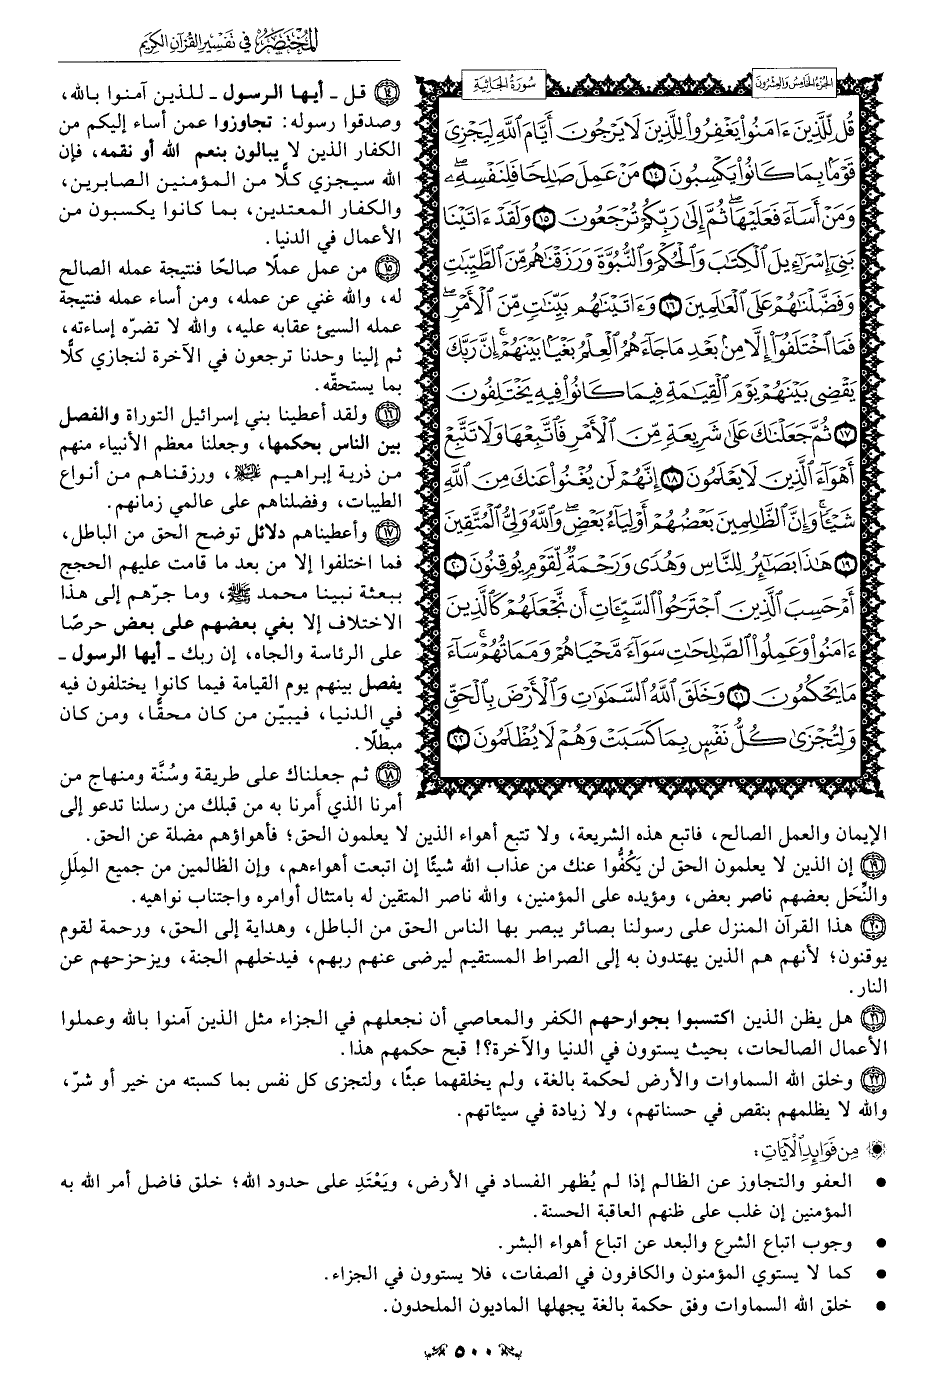 المختصر في تفسير القرآن الكريم
الجزء الخامس والعشرون
سورة الجاثية
قُل لِّلَّذِينَ ءَامَنُواْ يَغْفِرُواْ لِلَّذِينَ لَا يَرْجُونَ أَيَّامَ اللَّهِ لِيَجْزِىَ
قَوْمًۢا بِمَا كَانُواْ يَكْسِبُونَ ١٤ مَنْ عَمِلَ صَٰلِحًا فَلِنَفْسِهِۦۖ
وَمَنْ أَسَآءَ فَعَلَيْهَاۖ ثُمَّ إِلَىٰ رَبِّكُمْ تُرْجَعُونَ ١٥ وَلَقَدْ ءَاتَيْنَا
بَنِىٓ إِسْرَٰٓءِيلَ الْكِتَٰبَ وَالْحُكْمَ وَالنُّبُوَّةَ وَرَزَقْنَٰهُم مِّنَ الطَّيِّبَٰتِ
وَفَضَّلْنَٰهُمْ عَلَى الْعَٰلَمِينَ ١٦ وَءَاتَيْنَٰهُم بَيِّنَٰتٍ مِّنَ الْأَمْرِۖ
فَمَا اخْتَلَفُوٓاْ إِلَّا مِنۢ بَعْدِ مَا جَآءَهُمُ الْعِلْمُ بَغْيًۢا بَيْنَهُمْۚ إِنَّ رَبَّكَ
يَقْضِى بَيْنَهُمْ يَوْمَ الْقِيَٰمَةِ فِيمَا كَانُواْ فِيهِ يَخْتَلِفُونَ
١٧ ثُمَّ جَعَلْنَٰكَ عَلَىٰ شَرِيعَةٍ مِّنَ الْأَمْرِ فَاتَّبِعْهَا وَلَا تَتَّبِعْ
أَهْوَآءَ الَّذِينَ لَا يَعْلَمُونَ ١٨ إِنَّهُمْ لَن يُغْنُواْ عَنكَ مِنَ اللَّهِ
شَيْـًٔاۚ وَإِنَّ الظَّٰلِمِينَ بَعْضُهُمْ أَوْلِيَآءُ بَعْضٍۖ وَاللَّهُ وَلِىُّ الْمُتَّقِينَ
١٩ هَٰذَا بَصَٰٓئِرُ لِلنَّاسِ وَهُدًى وَرَحْمَةٌ لِّقَوْمٍ يُوقِنُونَ ٢٠
أَمْ حَسِبَ الَّذِينَ اجْتَرَحُواْ السَّيِّـَٔاتِ أَن نَّجْعَلَهُمْ كَالَّذِينَ
ءَامَنُواْ وَعَمِلُواْ الصَّٰلِحَٰتِ سَوَآءً مَّحْيَاهُمْ وَمَمَاتُهُمْۚ سَآءَ
مَا يَحْكُمُونَ ٢١ وَخَلَقَ اللَّهُ السَّمَٰوَٰتِ وَالْأَرْضَ بِالْحَقِّ
وَلِتُجْزَىٰ كُلُّ نَفْسٍۭ بِمَا كَسَبَتْ وَهُمْ لَا يُظْلَمُونَ ٢٢
١٤ قل ـ أيها الرسول ـ للذين آمنوا بالله،
وصدقوا رسوله: تجاوزوا عمن أساء إليكم من
الكفار الذين لا يبالون بنعم الله أو نقمه، فإن
الله سيجزي كلًّا من المؤمنين الصابرين،
والكفار المعتدين، بما كانوا يكسبون من
الأعمال في الدنيا.
١٥ من عمل عملًا صالحًا فنتيجة عمله الصالح
له، والله غني عن عمله، ومن أساء عمله فنتيجة
عمله السيئ عقابه عليه، والله لا تضرّه إساءته،
ثم إلينا وحدنا ترجعون في الآخرة لنجازي كلًّا
بما يستحقّه.
١٦ ولقد أعطينا بني إسرائيل التوراة والفصل
بين الناس بحكمها، وجعلنا معظم الأنبياء منهم
من ذرية إبراهيم ﷺ، ورزقناهم من أنواع
الطيبات، وفضلناهم على عالمي زمانهم.
١٧ وأعطيناهم دلائل توضح الحق من الباطل،
فما اختلفوا إلا من بعد ما قامت عليهم الحجج
ببعثة نبينا محمد ﷺ، وما جرّهم إلى هذا
الاختلاف إلا بغي بعضهم على بعض حرصًا
على الرئاسة والجاه، إن ربك ـ أيها الرسول ـ
يفصل بينهم يوم القيامة فيما كانوا يختلفون فيه
في الدنيا، فيبيّن من كان محقًّا، ومن كان
مبطلًا.
١٨ ثم جعلناك على طريقة وسُنَّة ومنهاج من
أمرنا الذي أَمرنا به من قبلك من رسلنا تدعو إلى
الإيمان والعمل الصالح، فاتبع هذه الشريعة، ولا تتبع أهواء الذين لا يعلمون الحق؛ فأهواؤهم مضلة عن الحق.
١٩ إن الذين لا يعلمون الحق لن يَكُفُّوا عنك من عذاب الله شيئًا إن اتبعت أهواءهم، وإن الظالمين من جميع المِلَلِ
والنِّحَل بعضهم ناصر بعض، ومؤيده على المؤمنين، والله ناصر المتقين له بامتثال أوامره واجتناب نواهيه.
٢٠ هذا القرآن المنزل على رسولنا بصائر يبصر بها الناس الحق من الباطل، وهداية إلى الحق، ورحمة لقوم
يوقنون؛ لأنهم هم الذين يهتدون به إلى الصراط المستقيم ليرضى عنهم ربهم، فيدخلهم الجنة، ويزحزحهم عن
النار.
٢١ هل يظن الذين اكتسبوا بجوارحهم الكفر والمعاصي أن نجعلهم في الجزاء مثل الذين آمنوا بالله وعملوا
الأعمال الصالحات، بحيث يستوون في الدنيا والآخرة؟! قبح حكمهم هذا.
٢٢ وخلق الله السماوات والأرض لحكمة بالغة، ولم يخلقهما عبثًا، ولتجزى كل نفس بما كسبته من خير أو شرّ،
والله لا يظلمهم بنقص في حسناتهم، ولا زيادة في سيئاتهم.
مِن فَوَائِدِ الْآيَاتِ:
• العفو والتجاوز عن الظالم إذا لم يُظهر الفساد في الأرض، ويَعْتَدِ على حدود الله؛ خلق فاضل أمر الله به
المؤمنين إن غلب على ظنهم العاقبة الحسنة.
• وجوب اتباع الشرع والبعد عن اتباع أهواء البشر.
• كما لا يستوي المؤمنون والكافرون في الصفات، فلا يستوون في الجزاء.
• خلق الله السماوات وفق حكمة بالغة يجهلها الماديون الملحدون.
٥٠٠